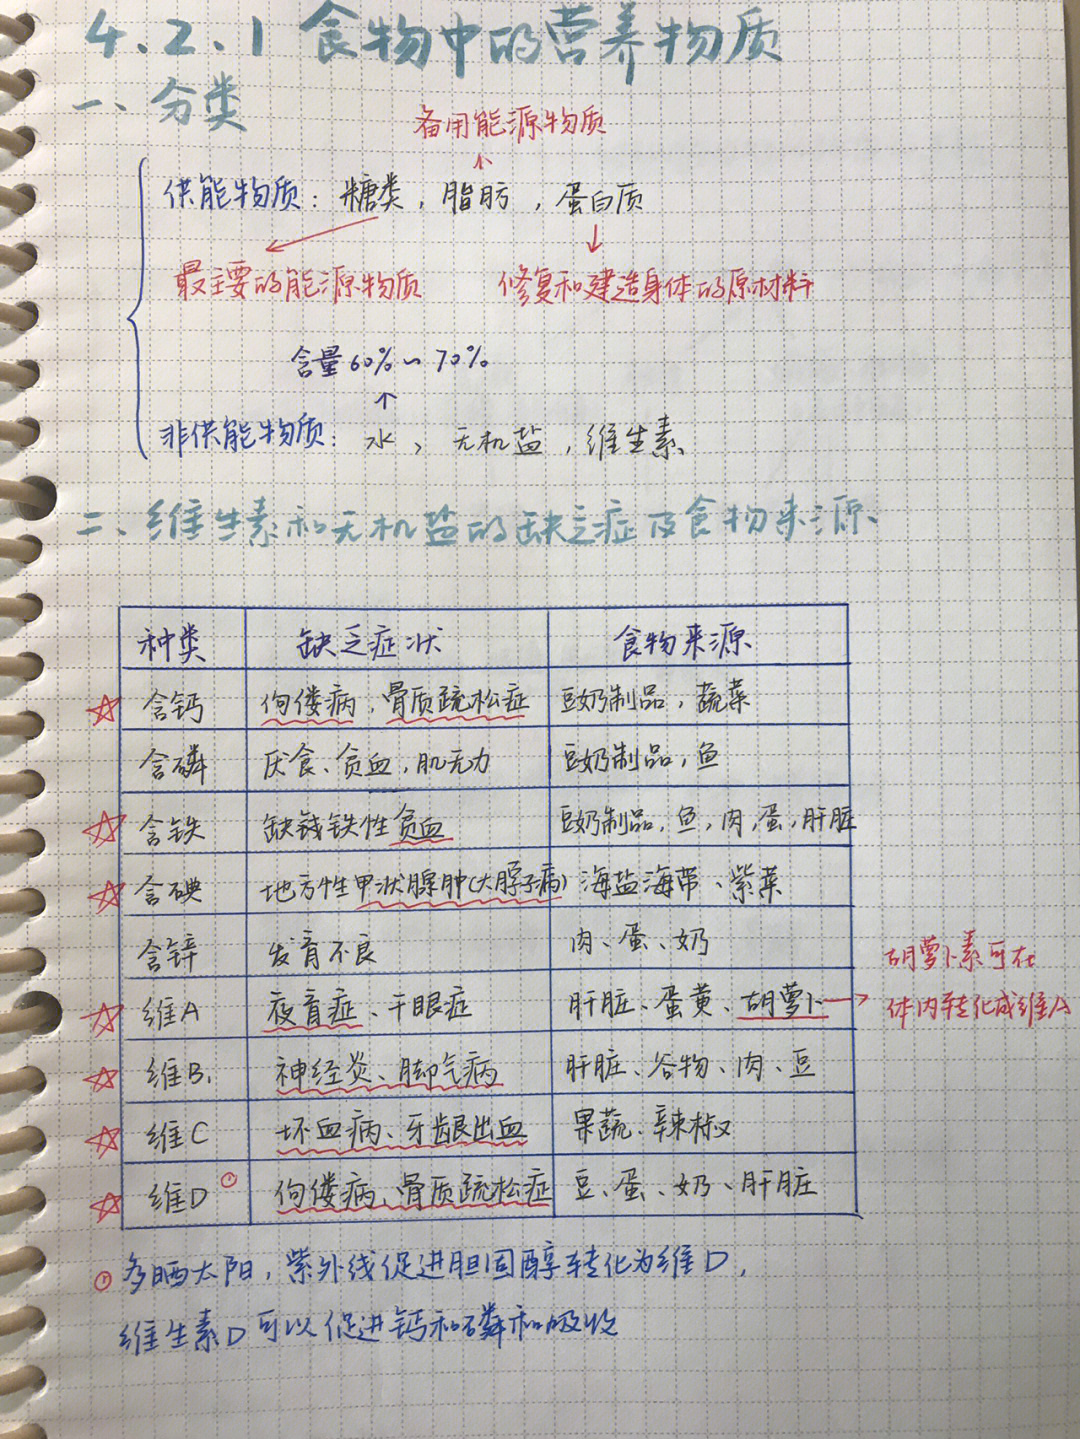 4.2.1 食物中的营养物质
一、分类
备用能源物质
供能物质：糖类，脂肪，蛋白质
最主要的能源物质 修复和建造身体的原材料
含量60%~70%
非供能物质：水，无机盐，维生素
二、维生素和无机盐的缺乏症及食物来源
种类 缺乏症状 食物来源
含钙 佝偻病，骨质疏松症 豆奶制品，蔬菜
含磷 厌食、贫血，肌无力 豆奶制品，鱼
含铁 缺钱铁性贫血 豆奶制品，鱼，肉，蛋，肝脏
含碘 地方性甲状腺肿(大脖子病) 海盐海带、紫菜
含锌 发育不良 肉、蛋、奶
胡萝卜素可在
维A 夜盲症、干眼症 肝脏、蛋黄、胡萝卜
体内转化成维A
维B₁ 神经炎、脚气病 肝脏、谷物、肉、豆
维C 坏血病、牙龈出血 果蔬、辣椒
维D① 佝偻病，骨质疏松症 豆、蛋、奶、肝脏
①多晒太阳，紫外线促进胆固醇转化为维D，
维生素D可以促进钙和磷和吸收